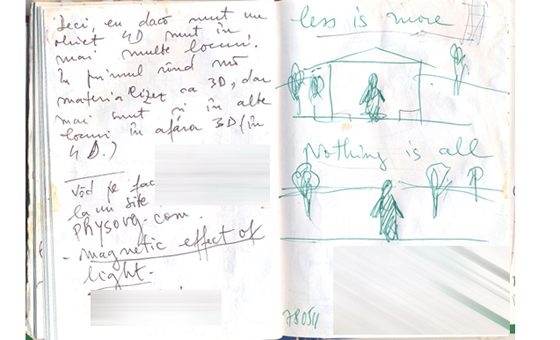 Deci, eu dacă sunt un
obiect 4D sunt în
mai multe locuri.
În primul rând mă
materializez ca 3D, dar
mai sunt și în alte
locuri în afara 3D (în
4D.)
Văd pe fac
la un site
physorg.com.
- magnetic effect of
light -
less is more
Nothing is all
78054